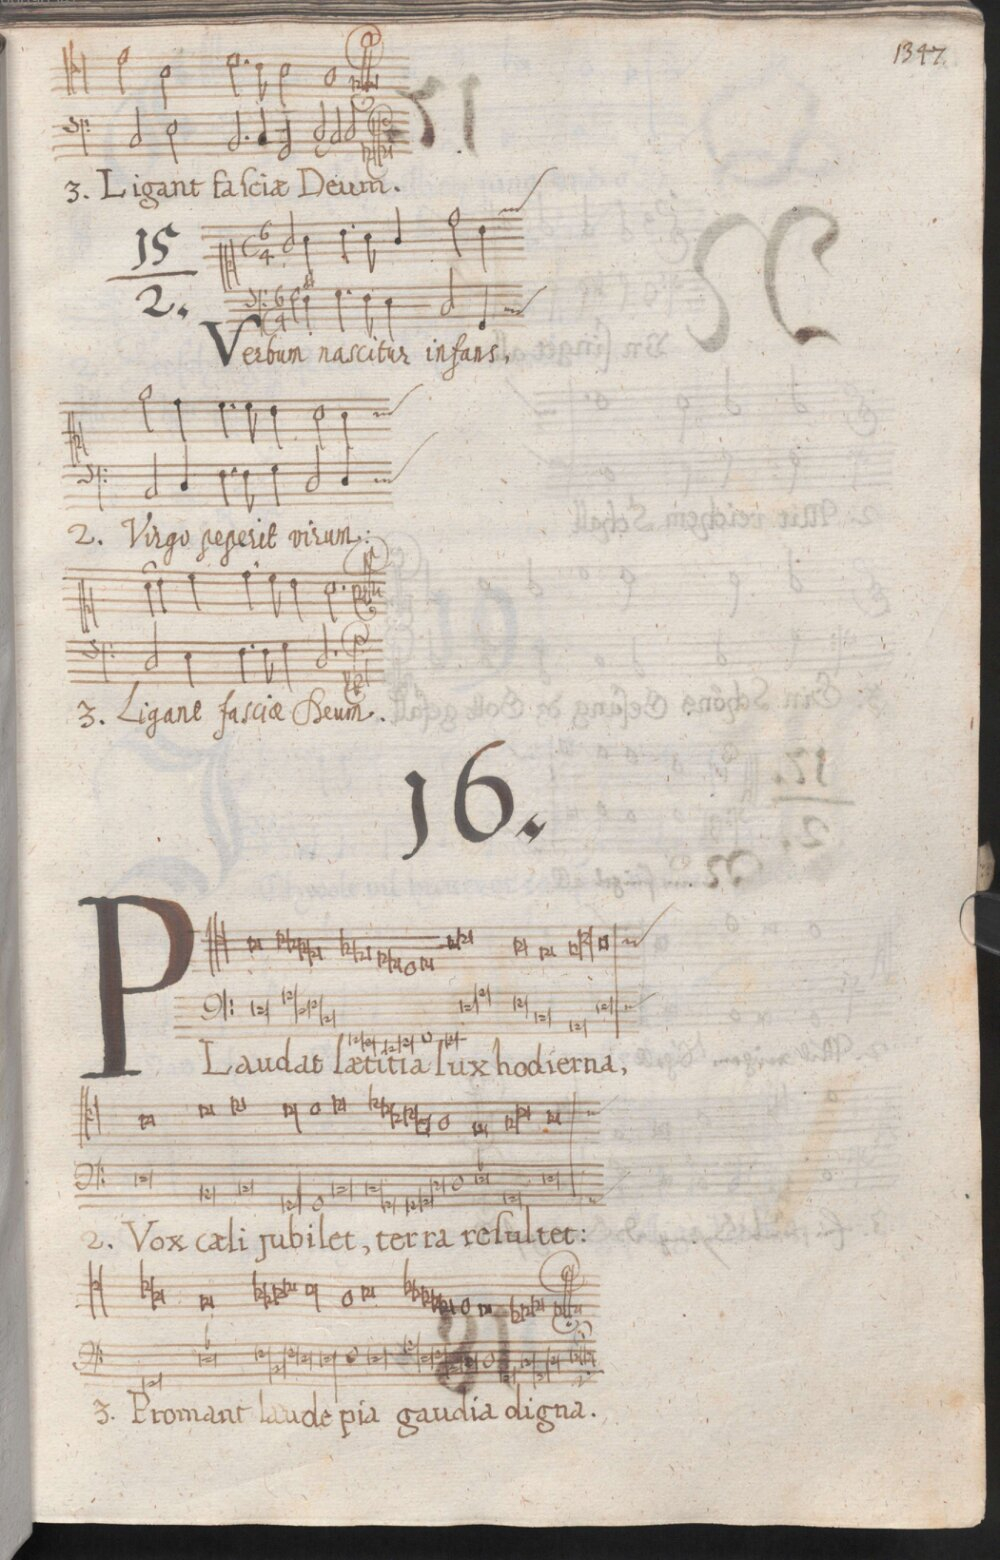 1347.
3. Ligant fasciæ Deum.
15
2.
Verbum nascitur infans,
2. Virgo peperit virum:
3. Ligant fasciæ Deum.
16.
PLaudat lætitia lux hodierna,
2. Vox cæli jubilet, terra resultet:
3. Promant laude pia gaudia digna.